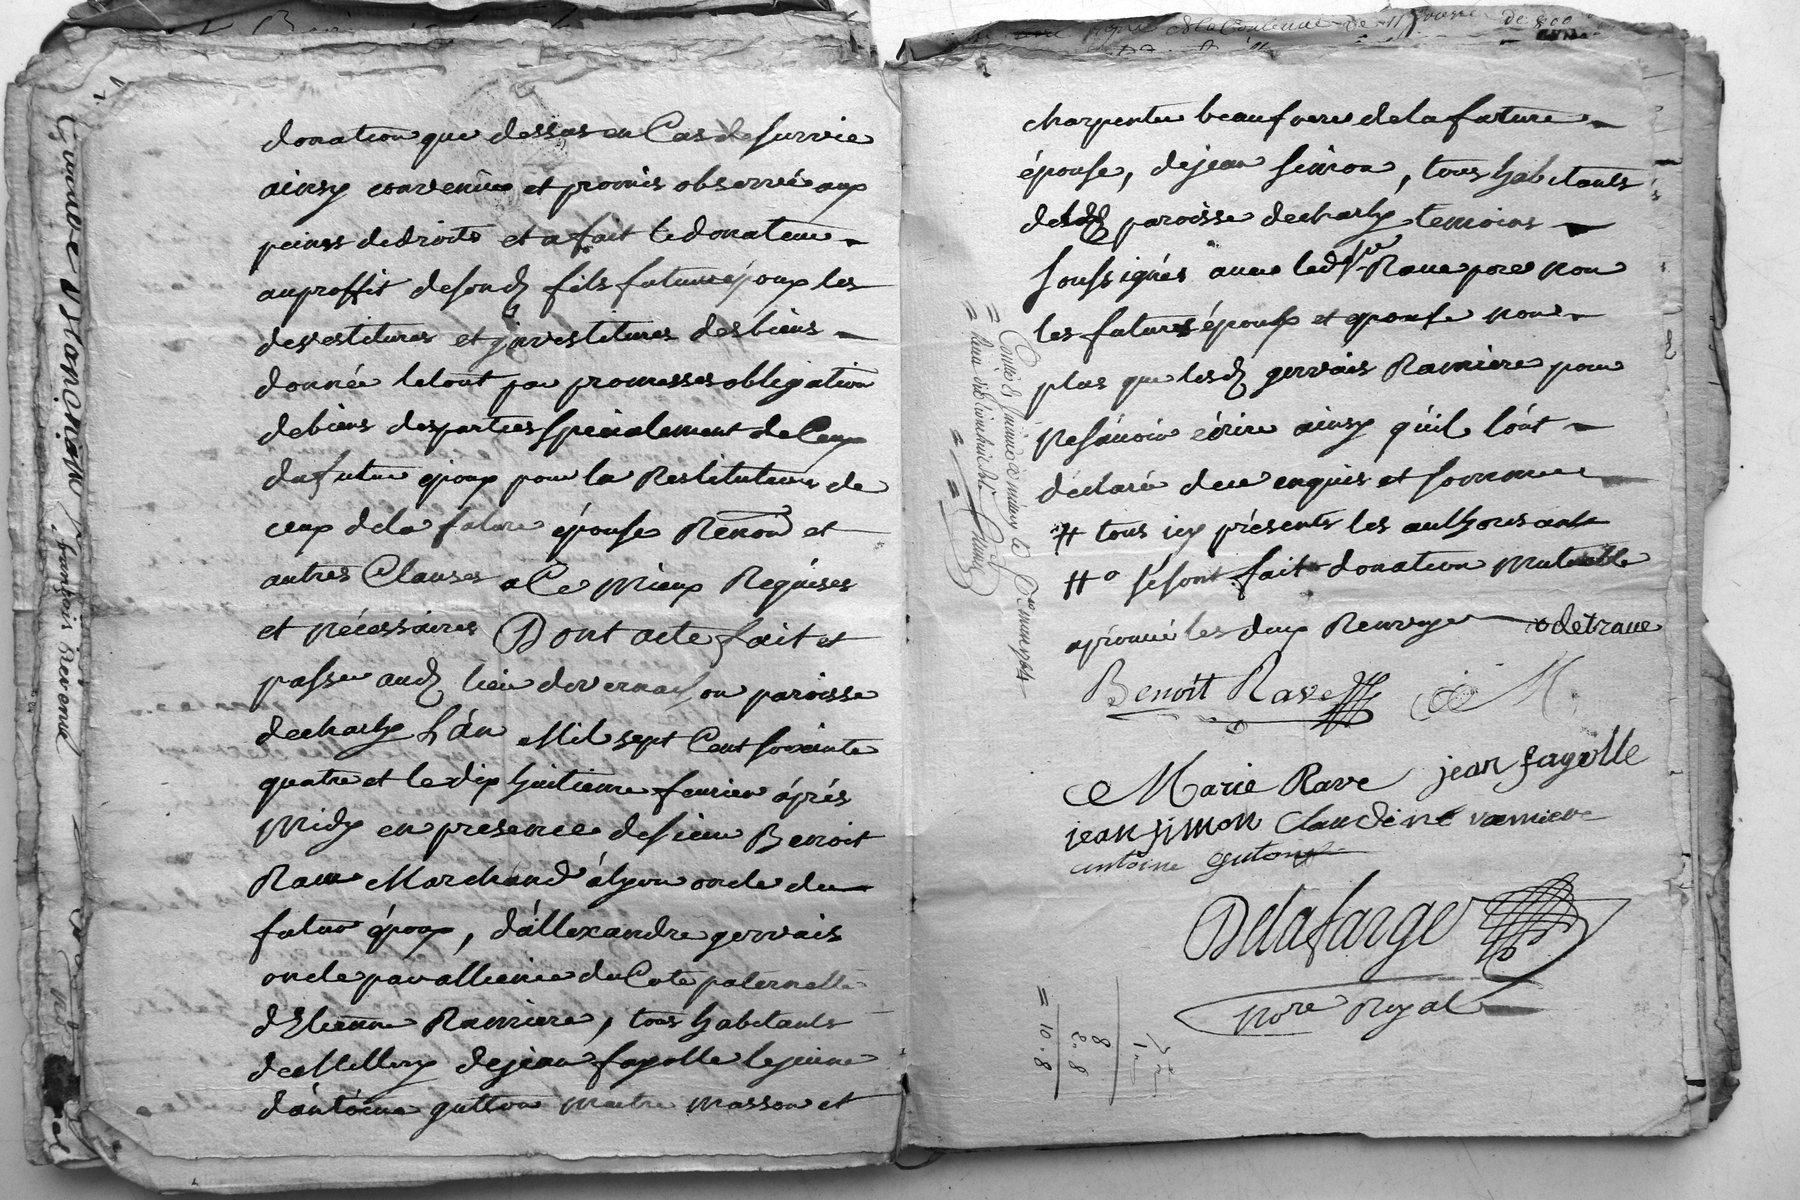 donation que dessus en Cas de survie
ainsy convenüe et promis observé aux
peines de droits et a fait le donateur
au proffit de sond fils futur époux les
devestitures et jnvestitures des biens
donnée le tout par promesses obligation
de biens des parties specialement de Ceux
du futur époux pour la Restitution de
ceux de la future épouse Renon et
autres Clauses a Ce Mieux Requises
et nécessaires Dont acte fait et
passé aud lieu de vernaison paroisse
de charly L'án Mil sept Cent soixante
quatre et le dix huitieme feurier áprés
Midy en presence de sieur Benoit
Raue Marchand á lyon oncle du
futur époux, d'állexandre gervais
oncle du Coté paternelle
d'Etienne Ramiere, tous habitants
de Millery de jean fayolle le jeune
d'ántoine gutton maitre masson et
charpentier beaufrere de la future
épouse, de jean simon, tous habitants
de lad paroisse de charly temoins
soussignés auec led sr Raue pere non
les futurs époux et epouse non
plus que lesd gervais Ramiere pour
ne sáuoir écrire ainsy qu'il lónt
déclaré de ce enquis et sommé
# tous icy présents les authorisant
#° se sont fait donation mutuelle
aprouué les deux Renvoye
Benoit Rave
Marie Rave jean fayolle
jean simon Claudine ramiere
antoine gutton
Delafarge
nore Royal
françois Revenu
= 10. 8
8. 8
8